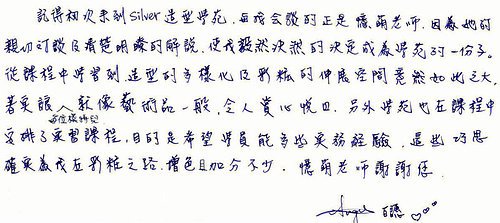 記得初次來到silver造型學苑，與我會談的正是憶萌老師，因為她的
親切可談及清楚明瞭的解說，使我毅然決然的決定成為學苑的一份子。
從課程中學習到造型的多樣化且彩粧的伸展空間竟然如此之大，
著實讓人就像藝術品一般，令人賞心悅目，另外學苑也在課程中
每位模特兒
安排了實習課程，目的是希望學員能多些實務經驗，這些巧思
確實為我在彩粧之路，增色且加分不少。憶萌老師謝謝您。
Angel